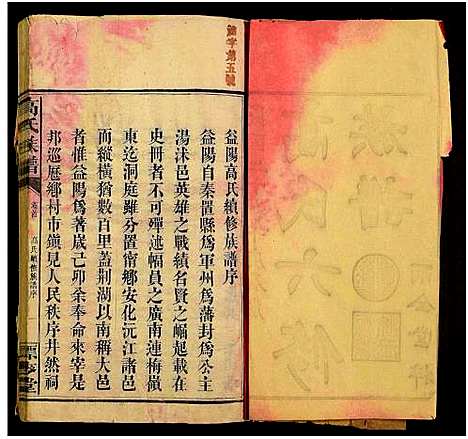 益陽高氏續修族譜序
益陽自秦置縣爲軍州爲藩封爲公主
湯沐邑英雄之戰績名賢之崛起載在
史冊者不可殫述幅員之廣南連梅嶺
東迄洞庭雖分置甯鄉安化沅江諸邑
而縱橫猶數百里蓋荆湖以南稱大邑
者惟益陽爲著歲己卯余奉命來宰是
邦巡歷鄉村市鎮見人民秩序井然祠
高氏族譜
卷首
高氏續修族譜序